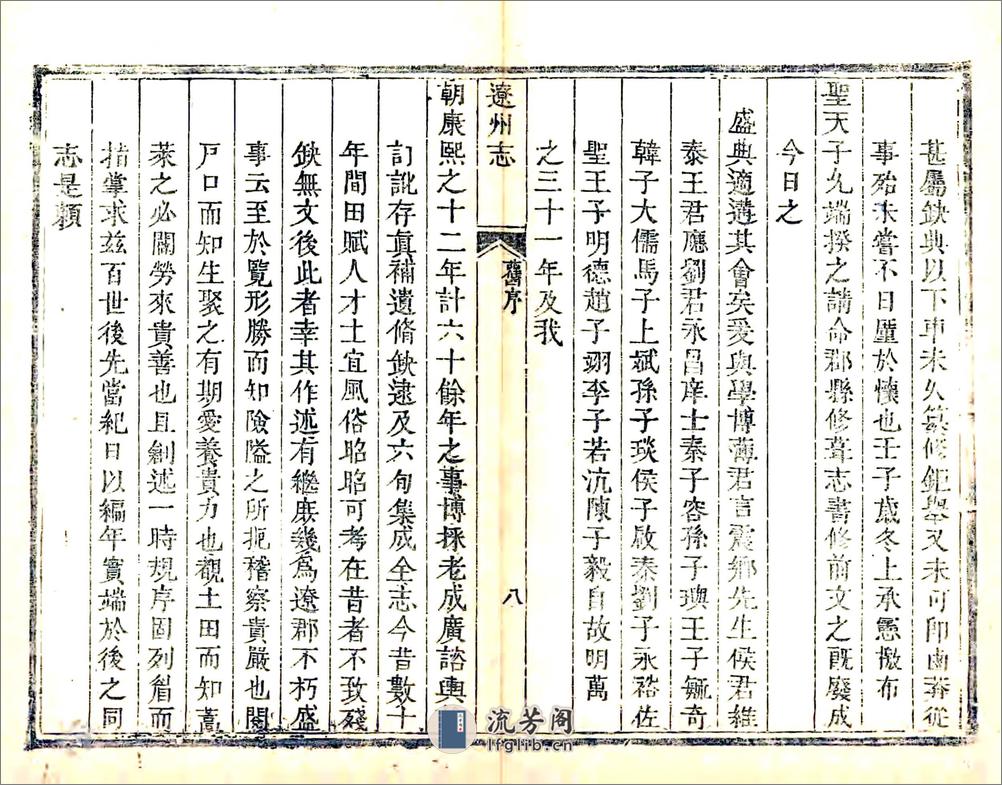 甚屬缺典以下車未久纂修鉅舉又未可即鹵莽從
事殆未嘗不日厪於懷也壬子歲冬上承憲檄布
聖天子九端揆之請命郡縣修葺志書修前文之既廢成
今日之
盛典適遘其會矣爰與學博薄君言震鄉先生侯君維
泰王君應劉君永昌庠士秦子容孫子璵王子毓奇
韓子大儒馬子上斌孫子琰侯子啟泰劉子永祚佐
聖王子明德趙子翊李子若沆陳子毅自故明萬
之三十一年及我
遼州志
舊序
八
朝康熙之十二年計六十餘年之事博採老成廣諮輿
訂訛存真補遺脩缺逮及六旬集成全志今昔數十
年間田賦人才土宜風俗昭昭可考在昔者不致殘
缺無文後此者幸其作述有繼庶幾為遼郡不朽盛
事云至於覽形勝而知險隘之所扼稽察貴嚴也閱
戶口而知生聚之有期愛養貴力也觀土田而知蒿
萊之必闢勞來貴善也且創述一時規序固列眉而
指掌求茲百世後先當紀日以編年實端於後之同
志是願
流芳阁
lfglib.cn